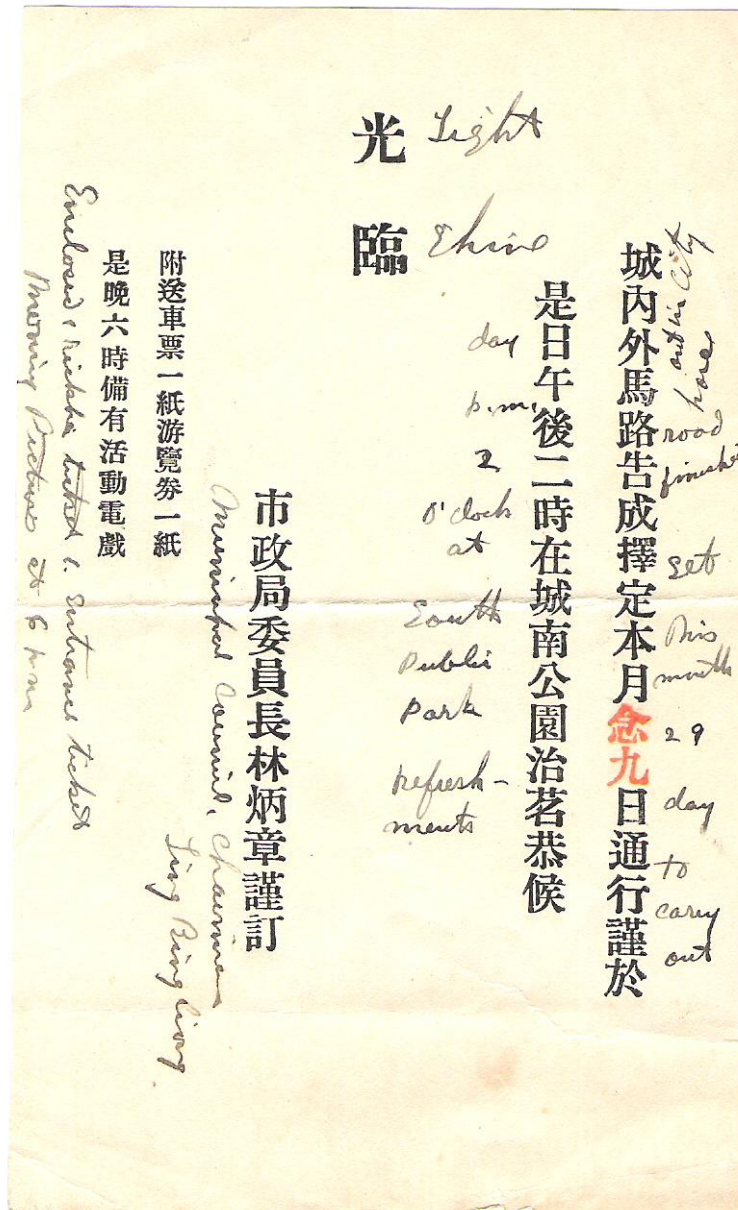 城內外馬路告成擇定本月念九日通行謹於
out in city
horse
road
finished
set
this
month
29
day
to
carry
out
是日午後二時在城南公園治茗恭候
day
p.m.
2
O'clock
at
South
Public
Park
Refresh-
ments
光臨
Light
Shine
市政局委員長林炳章謹訂
Municipal Council, Chairman
Ling Bing Ciong
附送車票一紙游覽券一紙
是晚六時備有活動電戲
Enclosed 1 ricksha ticket 1. Entrance ticket
Moving Pictures at 6 p.m